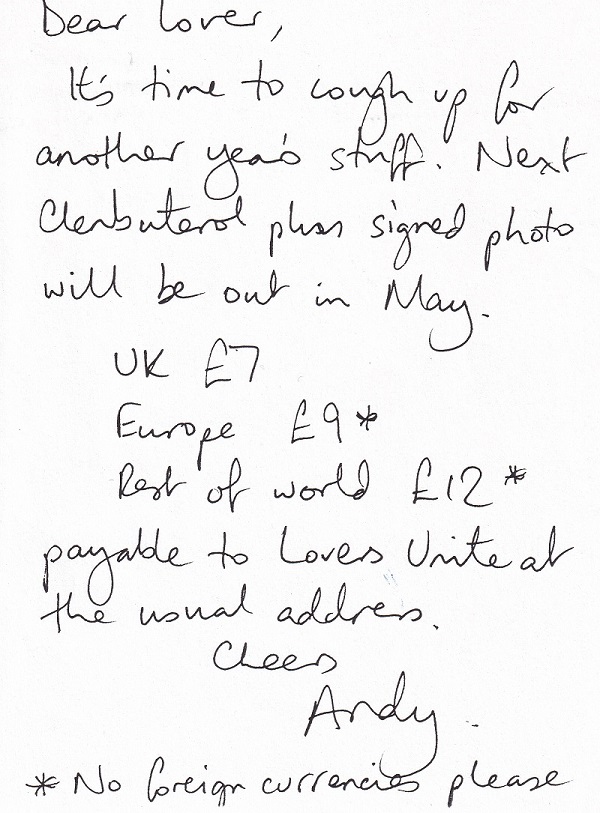 Dear Lover,
It's time to cough up for
another year's stuff. Next
Clenbuterol plus signed photo
will be out in May.
UK £7
Europe £9*
Rest of world £12*
payable to Lovers Unite at
the usual address.
Cheers
Andy.
* No foreign currencies please